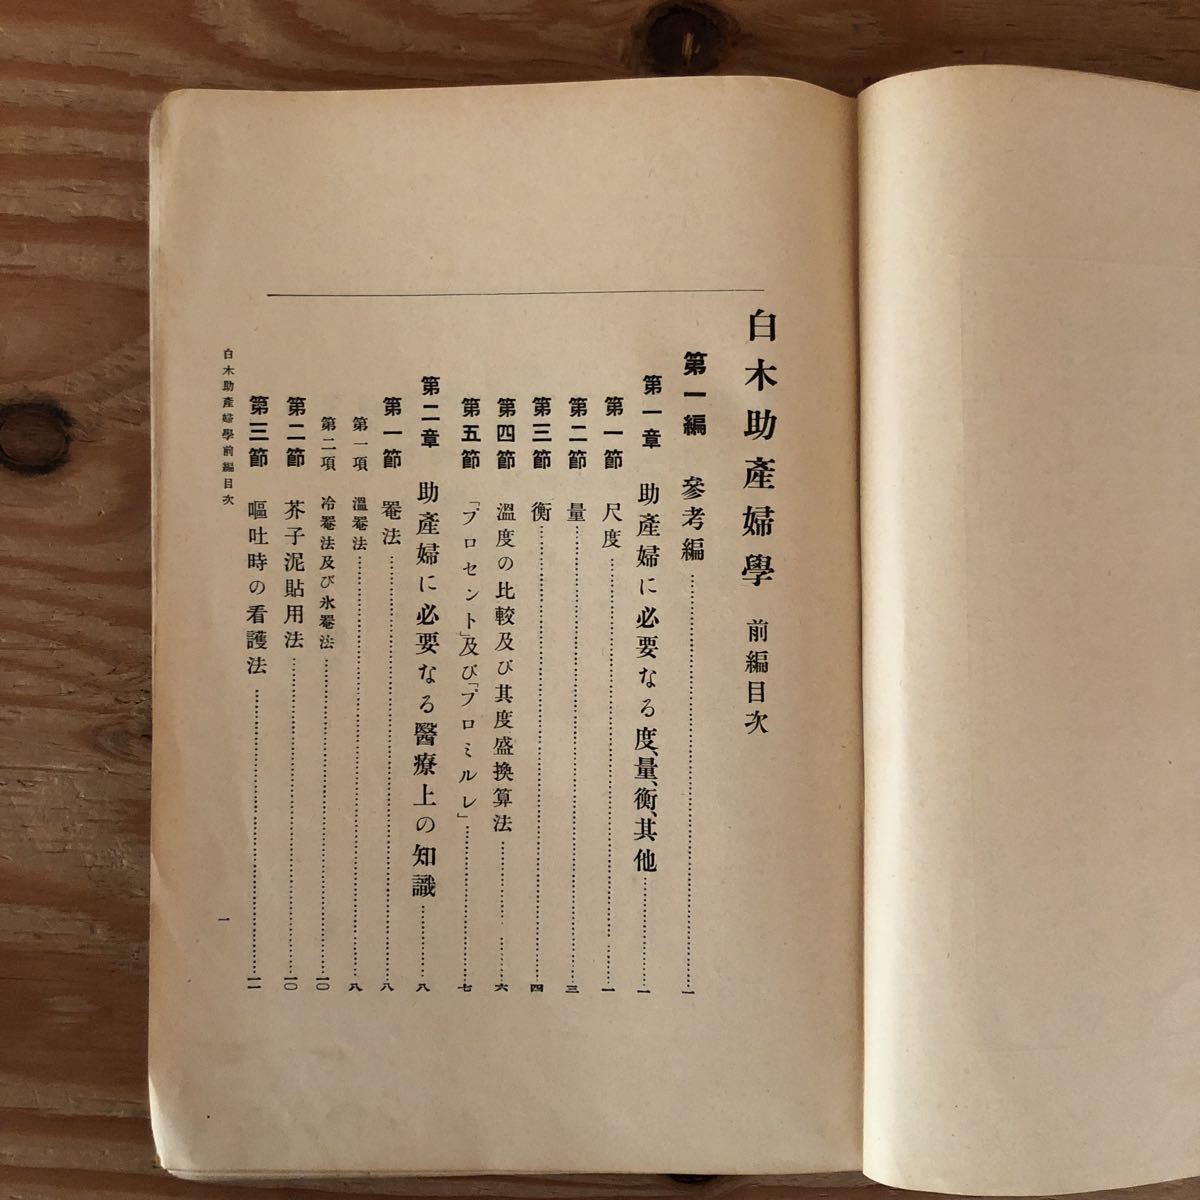 白木助產婦學 前編目次
第一編 參考編 一
第一章 助產婦に必要なる度、量、衡、其他 一
第一節 尺度 一
第二節 量 三
第三節 衡 四
第四節 溫度の比較及び其度盛換算法 六
第五節 「プロセント」及び「プロミルレ」 七
第二章 助產婦に必要なる醫療上の知識 八
第一節 罨法 八
第一項 溫罨法 八
第二項 冷罨法及び氷罨法 一〇
第二節 芥子泥貼用法 一〇
第三節 嘔吐時の看護法 一一
白木助產婦學前編目次
一